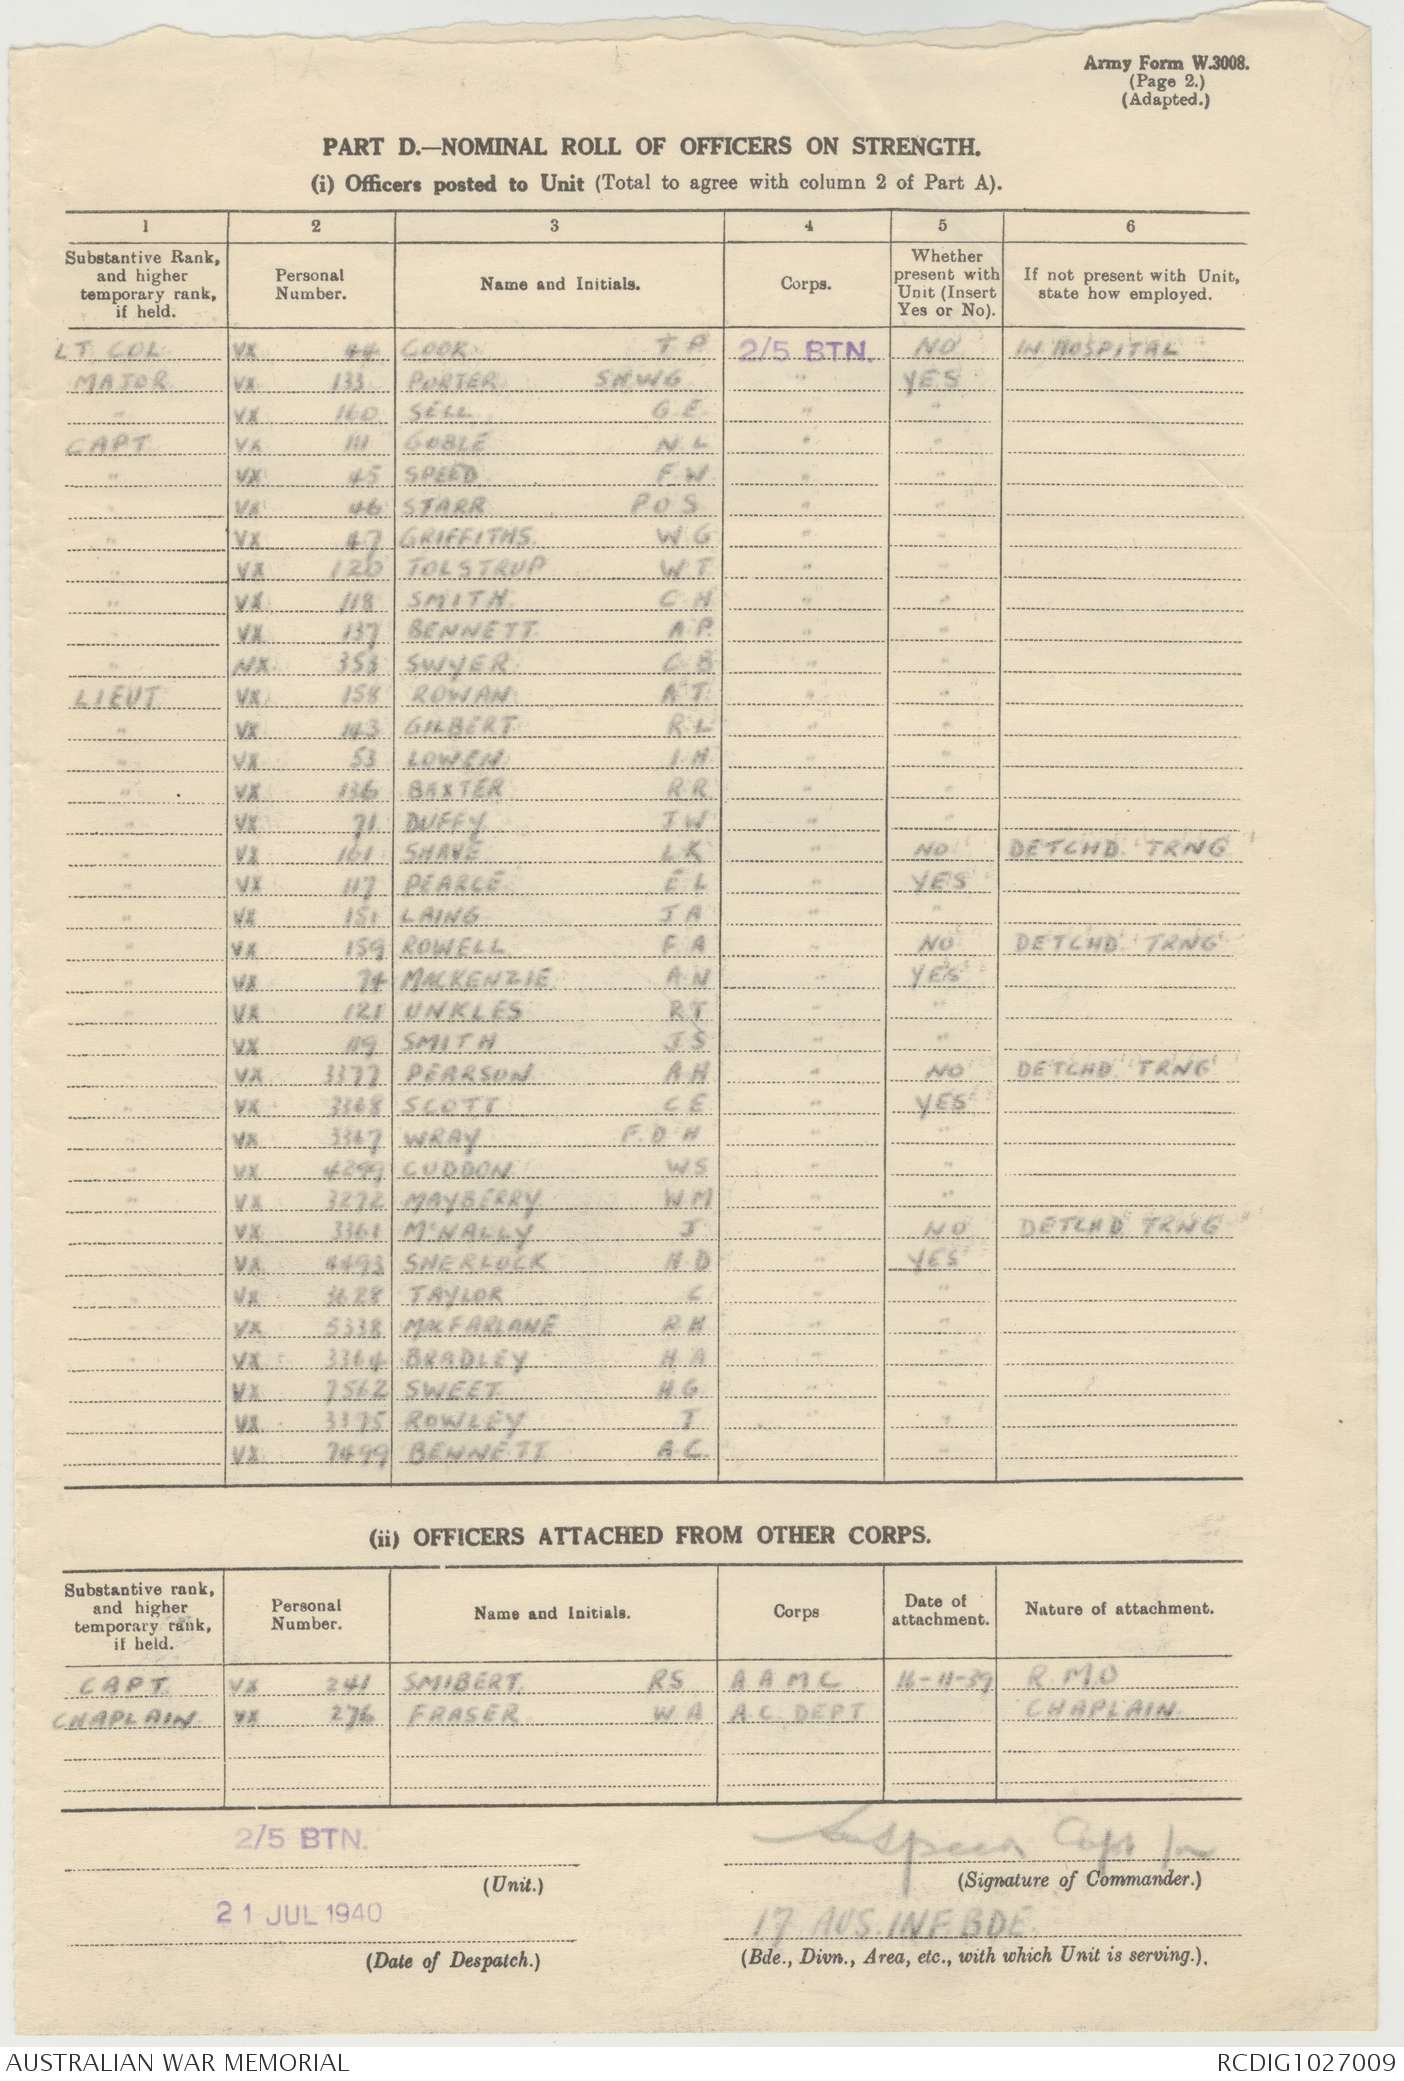 Army Form W.3008.
(Page 2.)
(Adapted.)
PART D.—NOMINAL ROLL OF OFFICERS ON STRENGTH.
(i) Officers posted to Unit (Total to agree with column 2 of Part A).
1 2 3 4 5 6
Substantive Rank, and higher temporary rank, if held. Personal Number. Name and Initials. Corps. Whether present with Unit (Insert Yes or No). If not present with Unit, state how employed.
LT COL VX 44 COOK T P 2/5 BTN. NO IN HOSPITAL
MAJOR VX 133 PORTER SHWG " YES
" VX 160 SELL G E " "
CAPT VX 111 GOBLE N L " "
" VX 45 SPEED F W " "
" VX 46 STARR P O S " "
" VX 47 GRIFFITHS W G " "
" VX 120 TOLSTRUP W T " "
" VX 118 SMITH C H " "
" VX 137 BENNETT A P " "
" NX 353 SWYER C B " "
LIEUT VX 158 ROWAN A T " "
" VX 143 GILBERT R L " "
" VX 53 LOWEN I H " "
" VX 136 BAXTER R R " "
" VX 71 DUFFY J W " "
" VX 161 SHAVE L K " NO DETCHD TRNG
" VX 117 PEARCE E L " YES
" VX 151 LAING J A " "
" VX 159 ROWELL F A " NO DETCHD TRNG
" VX 74 MACKENZIE A N " YES
" VX 121 UNKLES R T " "
" VX 119 SMITH J S " "
" VX 3377 PEARSON A H " NO DETCHD TRNG
" VX 3368 SCOTT C E " YES
" VX 3367 WRAY F D H " "
" VX 4299 CUDDON W S " "
" VX 3272 MAYBERRY W M " "
" VX 3361 McNALLY J " NO DETCHD TRNG
" VX 4493 SHERLOCK H D " YES
" VX 3628 TAYLOR C " "
" VX 5338 MACFARLANE R H " "
" VX 3364 BRADLEY H A " "
" VX 7562 SWEET H G " "
" VX 3375 ROWLEY T " "
" VX 7499 BENNETT A C " "
(ii) OFFICERS ATTACHED FROM OTHER CORPS.
Substantive rank, and higher temporary rank, if held. Personal Number. Name and Initials. Corps Date of attachment. Nature of attachment.
CAPT. VX 241 SMIBERT. RS A A M C 16-11-39 R.M.O
CHAPLAIN VX 276 FRASER W A A.C. DEPT CHAPLAIN
2/5 BTN. Speed Capt for
(Unit.) (Signature of Commander.)
21 JUL 1940 17 AUS. INF BDE.
(Date of Despatch.) (Bde., Divn., Area, etc., with which Unit is serving.).
AUSTRALIAN WAR MEMORIAL RCDIG1027009